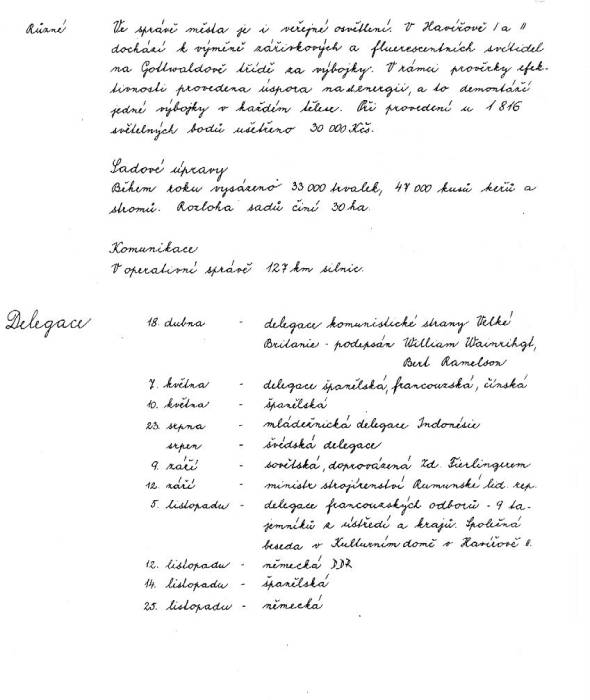 Různé
Ve správě města je i veřejné osvětlení. V Havířově I a II
dochází k výměně zářivkových a fluorescentních svítidel
na Gottwaldově třídě za výbojky. V rámci prověrky efek-
tivnosti provedena úspora na energii, a to demontáží
jedné výbojky v každém tělese. Při provedení u 1 816
světelných bodů ušetřeno 30 000 Kčs.
Sadové úpravy
Během roku vysázeno 33 000 trvalek, 47 000 kusů keřů a
stromů. Rozloha sadů činí 30 ha.
Komunikace
V operativní správě 127 km silnic.
Delegace
18. dubna - delegace komunistické strany Velké
Britanie - podepsán William Wainrihgt,
Bert Ramelson
7. května - delegace španělská, francouzská, čínská
10. května - španělská
23. srpna - mládežnická delegace Indonésie
srpen - švédská delegace
9. září - sovětská, doprovázená Zd. Fierlingrem
12. září - ministr strojírenství Rumunské lid. rep.
5. listopadu - delegace francouzských odborů - 9 ta-
jemníků z ústředí a krajů. Společná
beseda v Kulturním domě v Havířově
12. listopadu - německá DDR
14. listopadu - španělská
25. listopadu - německá